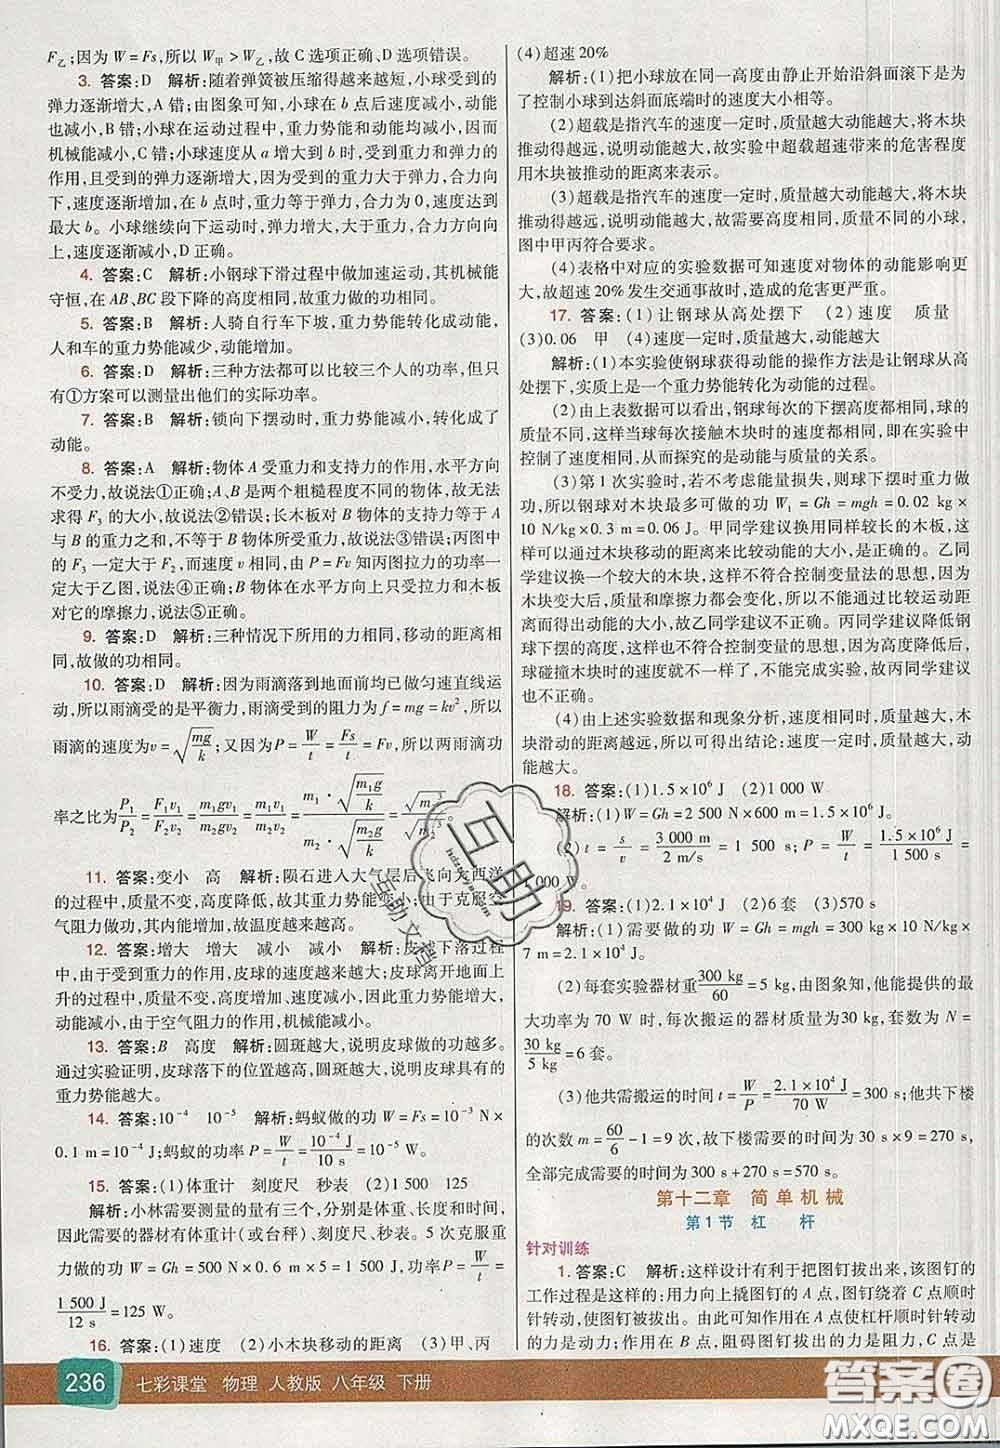 F乙;因为 W = Fs,所以 W甲 > W乙,故 C 选项正确、D 选项错误。
3. 答案:D 解析:随着弹簧被压缩得越来越短,小球受到的
弹力逐渐增大,A 错;由图象可知,小球在 b 点后速度减小,动能
也减小,B 错;小球在运动过程中,重力势能和动能均减小,因而
机械能减小,C 错;小球速度从 a 增大到 b 时,受到重力和弹力的
作用,且受到的弹力逐渐增大,因为受到的重力大于弹力,合力向
下,速度逐渐增加,在 b 点时,受到重力和弹力平衡,此时速度最
大 b。小球继续向下运动时,弹力增大,重力小于弹力,合力向
上,速度逐渐减小,D 正确。
4. 答案:C 解析:小钢球下滑过程中做加速运动,其机械能
守恒,在 AB、BC 段下降的高度相同,故重力做的功相同。
5. 答案:B 解析:人骑自行车下坡,重力势能转化成动能,
人和车的重力势能减少,动能增加。
6. 答案:D 解析:三种方法都可以比较三个人的功率,但
只有①方案可以测量出他们的实际功率。
7. 答案:B 解析:锁向下摆动时,重力势能减小,转化成了
动能。
8. 答案:A 解析:物体 A 受重力和支持力的作用,水平方向
不受力,故说法①正确;A、B 是两个粗糙程度不同的物体,故无法
求得 F3 的大小,故说法②错误;长木板对 B 物体的支持力等于 A
与 B 的重力之和,不等于 B 物体受到重力,故说法③错误;丙图中
的 F3 一定大于 F2,而速度 v 相同,由 P = Fv 可知丙图拉力的功率
一定大于乙图,说法④正确;B 物体在水平方向上只受拉力和木板
对它的摩擦力,故说法⑤正确。
9. 答案:D 解析:三种情况下所用的力相同,移动的距离相
同,故做的功相同。
10. 答案:D 解析:因为雨滴落到地面前均已做匀速直线运
动,所以雨滴受的是平衡力,雨滴受到的阻力为 f = mg = kv²,所以
雨滴的速度为 v = √(mg/k);又因为 P = W/t = Fs/t = Fv,所以两雨滴功
率之比为 P1/P2 = F1v1/F2v2 = m1gv1/m2gv2 = m1v1/m2v2 = (m1·√(m1g/k))/(m2·√(m2g/k))
11. 答案:变小 高 解析:陨石进人大气层后飞向大西洋
中,质量不变,高度降低,故其重力势能变小;由于克服空
气阻力做功,内能增加,故温度越来越高。
12. 答案:增大 增大 减小 减小 解析:皮球下落过程
中,由于受到重力的作用,皮球的速度越来越大;皮球离开地面上
升的过程中,质量不变,高度增加,因此重力势能增大,
动能减小,由于空气阻力的作用,机械能减小。
13. 答案:B 高度 解析:圆斑越大,皮球做的功越多。
通过实验证明,皮球下落的位置越高,圆斑越大,高度越大,重力
势能越大。
14. 答案:10⁻⁴ 10⁻⁵ 解析:蚂蚁做的功 W = Fs = 10⁻³ N ×
0.1 m = 10⁻⁴ J;蚂蚁的功率 P = W/t = 10⁻⁴ J/10 s = 10⁻⁵ W。
15. 答案:(1)体重计 刻度尺 秒表 (2)1500 125
解析:小林需要测量的量有三个,分别是体重、高度和时间,
对应的器材有体重计(或台秤)、刻度尺、秒表。5 次克服重
力做的功 W = Gh = 500 N × 0.6 m × 5 = 1 500 J,功率 P = W/t =
1 500 J/12 s = 125 W。
16. 答案:(1)速度 (2)小木块移动的距离 (3)甲、丙
(4)超速 20%
解析:(1)把小球放在同一高度由静止开始沿斜面滚下是为
了控制小球到达斜面底端时的速度大小相等。
(2)超载是指汽车的速度一定时,质量越大动能越大,将木块
推动得越远,说明动能越大。故实验中超载超速带来的危害程度
用木块被推动的距离来表示。
(3)超载是指汽车的速度一定时,质量越大动能越大,将木块
推动得越远,说明动能越大,故需要高度相同、质量不同的小球,
图中甲丙符合要求。
(4)表格中对应的实验数据可知速度对物体的动能影响更
大,故超速 20% 发生交通事故时,造成的危害更严重。
17. 答案:(1)让钢球从高处摆下 (2)速度 质量
(3)0.06 甲 (4)速度一定时,质量越大,动能越大
解析:(1)本实验使钢球获得动能的操作方法是让钢球从高
处摆下,实质上是一个重力势能转化为动能的过程。
(2)由上表数据可以看出,钢球每次的下摆高度都相同,球的
质量不同,而当球每次接触木块时的速度都相同,即在实验中
控制了速度相同,从而探究的是动能与质量的关系。
(3)第 1 次实验时,若不考虑能量损失,则球下摆时重力做
功,所以钢球对木块最多可做的功 W1 = Gh = mgh = 0.02 kg ×
10 N/kg × 0.3 m = 0.06 J。甲同学建议换用同样较长的木板,木块
可以通过木块移动的距离来比较动能的大小,是正确的。乙同
学建议换一个较大的木块,这样不符合控制变量法的思想,因为
木块变大后,质量和摩擦力都会变化,所以就不能用比较运动
距离而得出动能的大小,故乙同学建议不正确。丙同学建议降低钢
球下摆的高度,这样也不符合控制变量的思想,高度降低后,钢
球碰撞木块时的速度就减小了,不能完成实验,故丙同学建议
也不正确。
(4)由上述实验数据和现象分析,速度相同时,质量越大,木
块滑动的距离越远,所以可得出结论:速度一定时,质量越大,
动能越大。
18. 答案:(1)1.5 × 10⁶ J (2)1 000 W
解析:(1)W = Gh = 2 500 N × 600 m = 1.5 × 10⁶ J。
(2)t = s/v = 3 000 m/2 m/s = 1 500 s;P = W/t = 1.5 × 10⁶ J/1 500 s =
1 000 W。
19. 答案:(1)2.1 × 10⁴ J (2)6 套 (3)570 s
解析:(1)需要做的功 W = Gh = mgh = 300 kg × 10 N/kg ×
7 m = 2.1 × 10⁴ J。
(2)每套实验器材重 300 kg/60 = 5 kg,由图象知,他能提供的最
大功率为 70 W 时,每次搬运的器材质量为 30 kg,故有 N =
30 kg/5 kg = 6 套。
(3)他共需搬运的时间 t = W/P = 2.1 × 10⁴ J/70 W = 300 s;他共下楼
的次数 m = 60/6 - 1 = 9 次,故下楼需要的时间 30 s × 9 = 270 s,
全部完成需要的时间为 300 s + 270 s = 570 s。
第十二章 简单机械
第 1 节 杠 杆
针对训练
1. 答案:C 解析:这样设计有利于把图钉拔出来,该图钉的
工作过程是:用力向上撬图钉的 A 点,图钉绕着 C 点顺时
针转动,使图钉被拔出来。由此可知作用在 A 点使杠杆顺时针转动的
力是动力;作用在 B 点,阻碍图钉拔出的力是阻力,C 点是
236 七彩课堂 物理 人教版 八年级 下册
互助
互助文档
答案圈
MXQE.COM